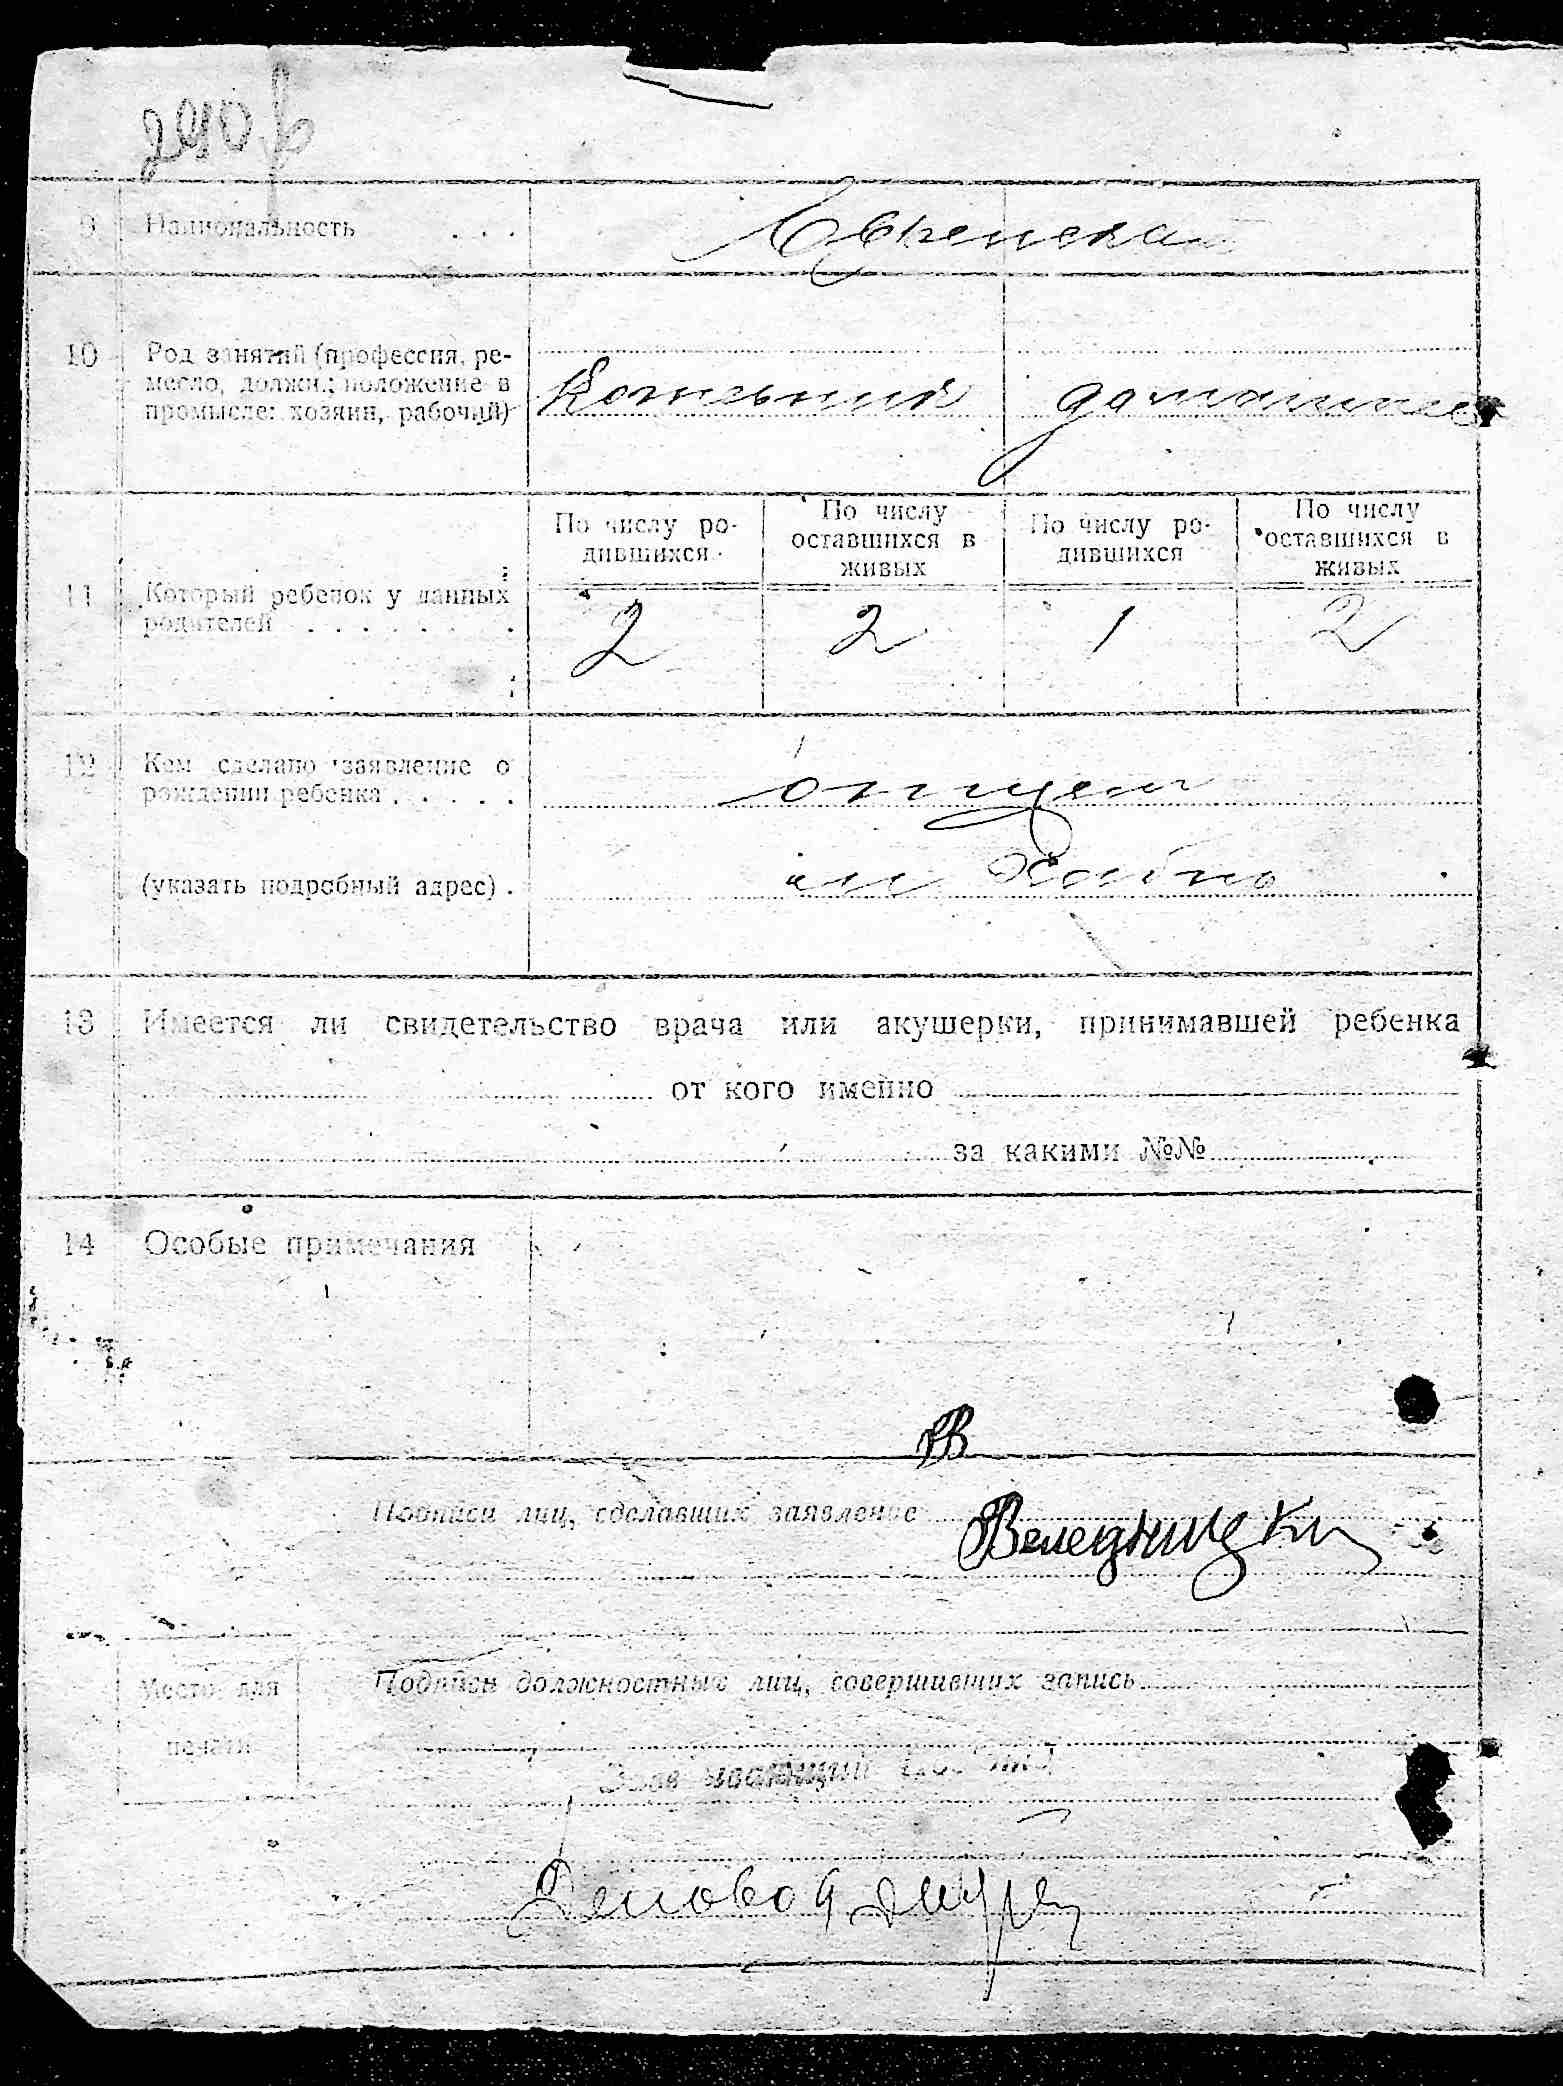 290
9 Национальность . . . Еврейская
10 Род занятий (профессия, ре-
месло, должн.; положение в
промысле: хозяин, рабочий)
Кожевник домашнее
По числу ро-
дившихся
По числу
оставшихся в
живых
По числу ро-
дившихся
По числу
оставшихся в
живых
11 Который ребенок у данных
родителей . . . . . . . .
2 2 1 2
12 Кем сделано заявление о
рождении ребенка . . . . .
отцем
(указать подробный адрес) . м Хабно
13 Имеется ли свидетельство врача или акушерки, принимавшей ребенка
от кого именно
за какими №№
14 Особые примечания
Подписи лиц, сделавших заявление Веледницки
Место для
печати
Подписи должностных лиц, совершивших запись
Деловод